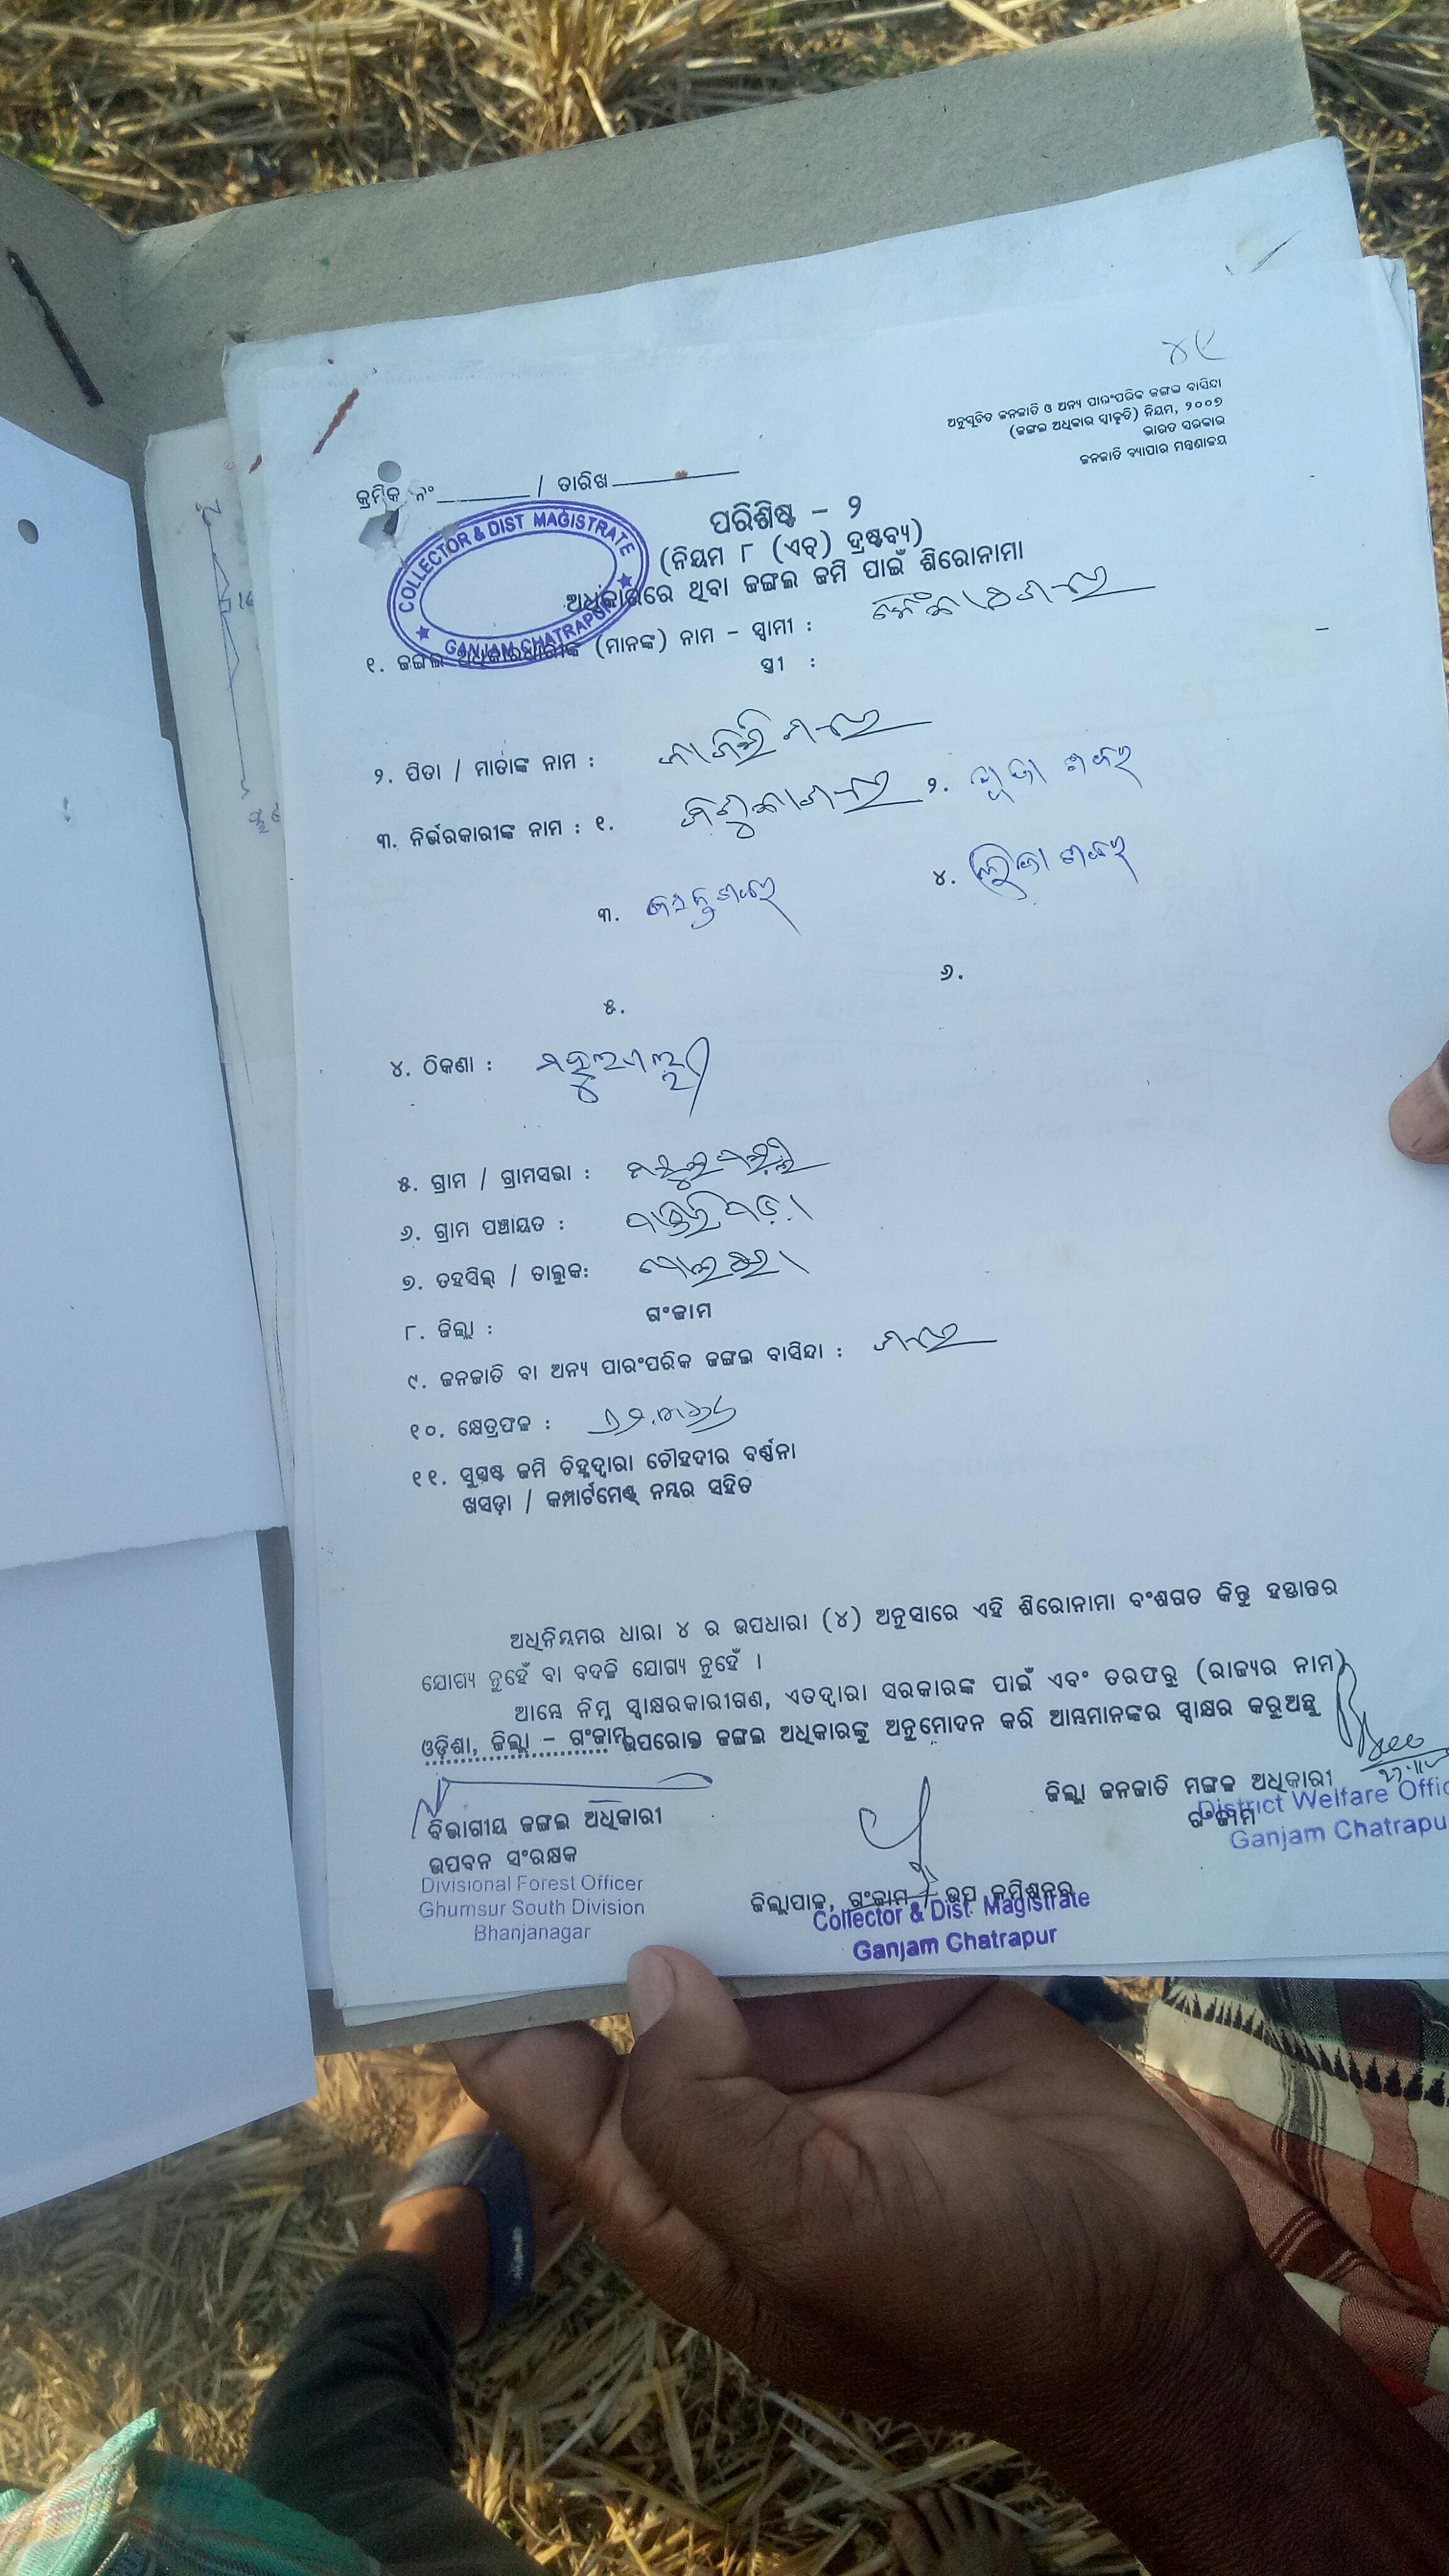 ୪୯
ଅନୁସୂଚିତ ଜନଜାତି ଓ ଅନ୍ୟ ପାରଂପରିକ ଜଙ୍ଗଲ ବାସିନ୍ଦା
(ଜଙ୍ଗଲ ଅଧିକାର ସ୍ୱୀକୃତି) ନିୟମ, ୨୦୦୭
ଭାରତ ସରକାର
ଜନଜାତି ବ୍ୟାପାର ମନ୍ତ୍ରଣାଳୟ
କ୍ରମିକ ନଂ / ତାରିଖ
COLLECTOR & DIST MAGISTRATE
GANJAM CHATRAPUR
ପରିଶିଷ୍ଟ – ୨
(ନିୟମ ୮ (ଏଚ୍) ଦ୍ରଷ୍ଟବ୍ୟ)
ଅଧିକାରରେ ଥିବା ଜଙ୍ଗଲ ଜମି ପାଇଁ ଶିରୋନାମା
୧. ଜଙ୍ଗଲ ଅଧିକାରଧାରୀଙ୍କ (ମାନଙ୍କ) ନାମ – ସ୍ୱାମୀ :
ସ୍ତ୍ରୀ :
୨. ପିତା / ମାତାଙ୍କ ନାମ :
୩. ନିର୍ଭରକାରୀଙ୍କ ନାମ : ୧. ୨.
୩. ୪.
୫. ୬.
୪. ଠିକଣା :
୫. ଗ୍ରାମ / ଗ୍ରାମସଭା :
୬. ଗ୍ରାମ ପଞ୍ଚାୟତ :
୭. ତହସିଲ୍ / ତାଲୁକ: ପୋଲସରା
୮. ଜିଲ୍ଲା : ଗଂଜାମ
୯. ଜନଜାତି ବା ଅନ୍ୟ ପାରଂପରିକ ଜଙ୍ଗଲ ବାସିନ୍ଦା :
୧୦. କ୍ଷେତ୍ରଫଳ :
୧୧. ସୁସ୍ପଷ୍ଟ ଜମି ଚିହ୍ନଦ୍ୱାରା ଚୌହଦୀର ବର୍ଣ୍ଣନା
ଖସଡ଼ା / କମ୍ପାର୍ଟମେଣ୍ଟ୍ ନମ୍ବର ସହିତ
ଅଧିନିୟମର ଧାରା ୪ ର ଉପଧାରା (୪) ଅନୁସାରେ ଏହି ଶିରୋନାମା ବଂଶଗତ କିନ୍ତୁ ହସ୍ତାନ୍ତର
ଯୋଗ୍ୟ ନୁହେଁ ବା ବଦଳି ଯୋଗ୍ୟ ନୁହେଁ ।
ଆମ୍ଭେ ନିମ୍ନ ସ୍ୱାକ୍ଷରକାରୀଗଣ, ଏତଦ୍ୱାରା ସରକାରଙ୍କ ପାଇଁ ଏବଂ ତରଫରୁ (ରାଜ୍ୟର ନାମ)
ଓଡ଼ିଶା, ଜିଲ୍ଲା – ଗଂଜାମ ଉପରୋକ୍ତ ଜଙ୍ଗଲ ଅଧିକାରଙ୍କୁ ଅନୁମୋଦନ କରି ଆମ୍ଭମାନଙ୍କର ସ୍ୱାକ୍ଷର କରୁଅଛୁ
ବିଭାଗୀୟ ଜଙ୍ଗଲ ଅଧିକାରୀ
ଉପବନ ସଂରକ୍ଷକ
Divisional Forest Officer
Ghumsur South Division
Bhanjanagar
ଜିଲ୍ଲାପାଳ, ଗଂଜାମ / ଉପ କମିଶନର
Collector & Dist. Magistrate
Ganjam Chatrapur
ଜିଲ୍ଲା ଜନଜାତି ମଙ୍ଗଳ ଅଧିକାରୀ
ଗଂଜାମ
District Welfare Offic
Ganjam Chatrapu